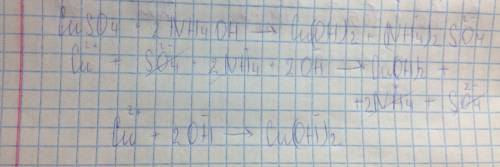 CuSO4 + 2NH4OH → Cu(OH)2 + (NH4)2SO4
Cu²⁺ + SO4²⁻ + 2NH4⁺ + 2OH⁻ → Cu(OH)2 +
+ 2NH4⁺ + SO4²⁻
Cu²⁺ + 2OH⁻ → Cu(OH)2